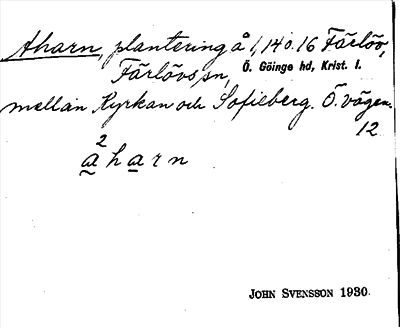 Aharn, plantering å 1, 14 o. 16 Färlöv,
Färlövs, sn, Ö. Göinge hd, Krist. l.
mellan Kyrkan och Sofieberg. Ö. vägen.
12
2
a h a r n
JOHN SVENSSON 1930.